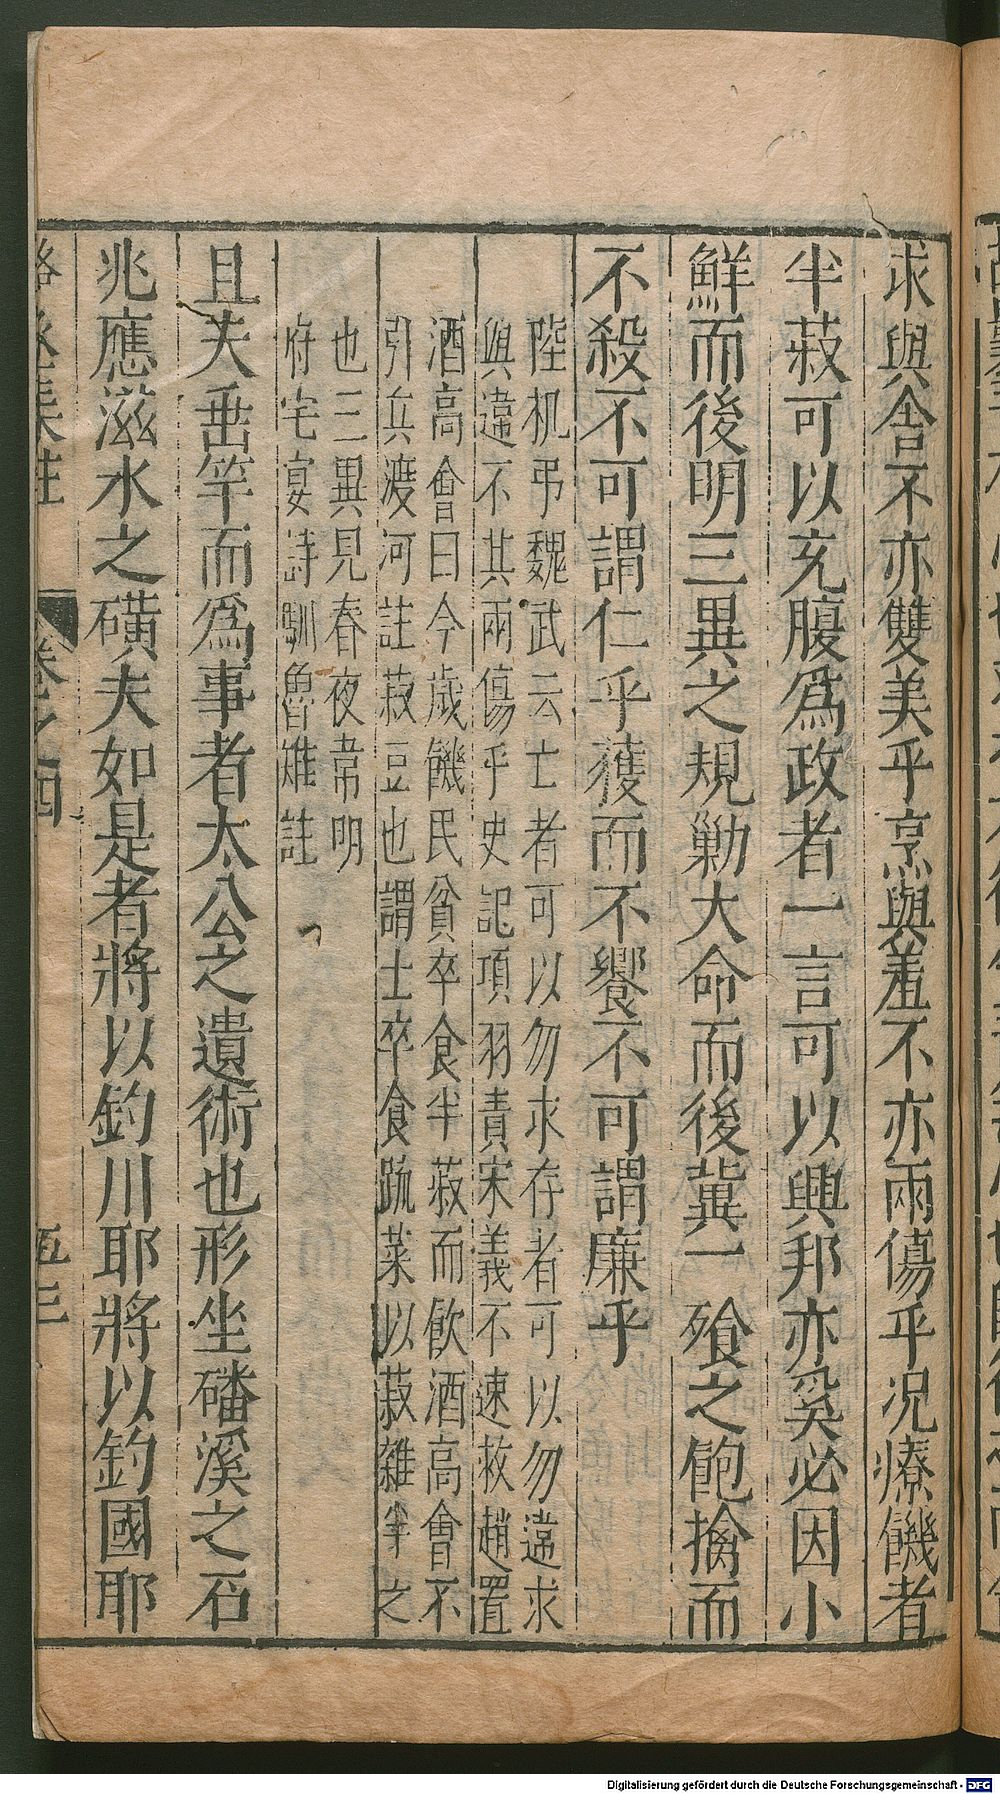 求與舍不亦雙美乎烹與羞不亦兩傷乎况療饑者
半菽可以充腹爲政者一言可以興邦亦奚必因小
鮮而後明三異之規勦大命而後冀一飱之飽擒而
不殺不可謂仁乎獲而不饗不可謂廉乎
陸机弔魏武云亡者可以勿求存者可以勿違求
與違不其兩傷乎史記項羽責宋義不速救趙置
酒高會曰今歲饑民貧卒食半菽而飲酒高會不
引兵渡河註菽豆也謂士卒食䟽菜以菽雜半之
也三異見春夜韋明
府宅宴詩馴魯雉註
且夫垂竿而爲事者太公之遺術也形坐磻溪之石
兆應滋水之磺夫如是者將以釣川耶將以釣國耶
駱丞集註 卷之四
Digitalisierung gefördert durch die Deutsche Forschungsgemeinschaft - DFG